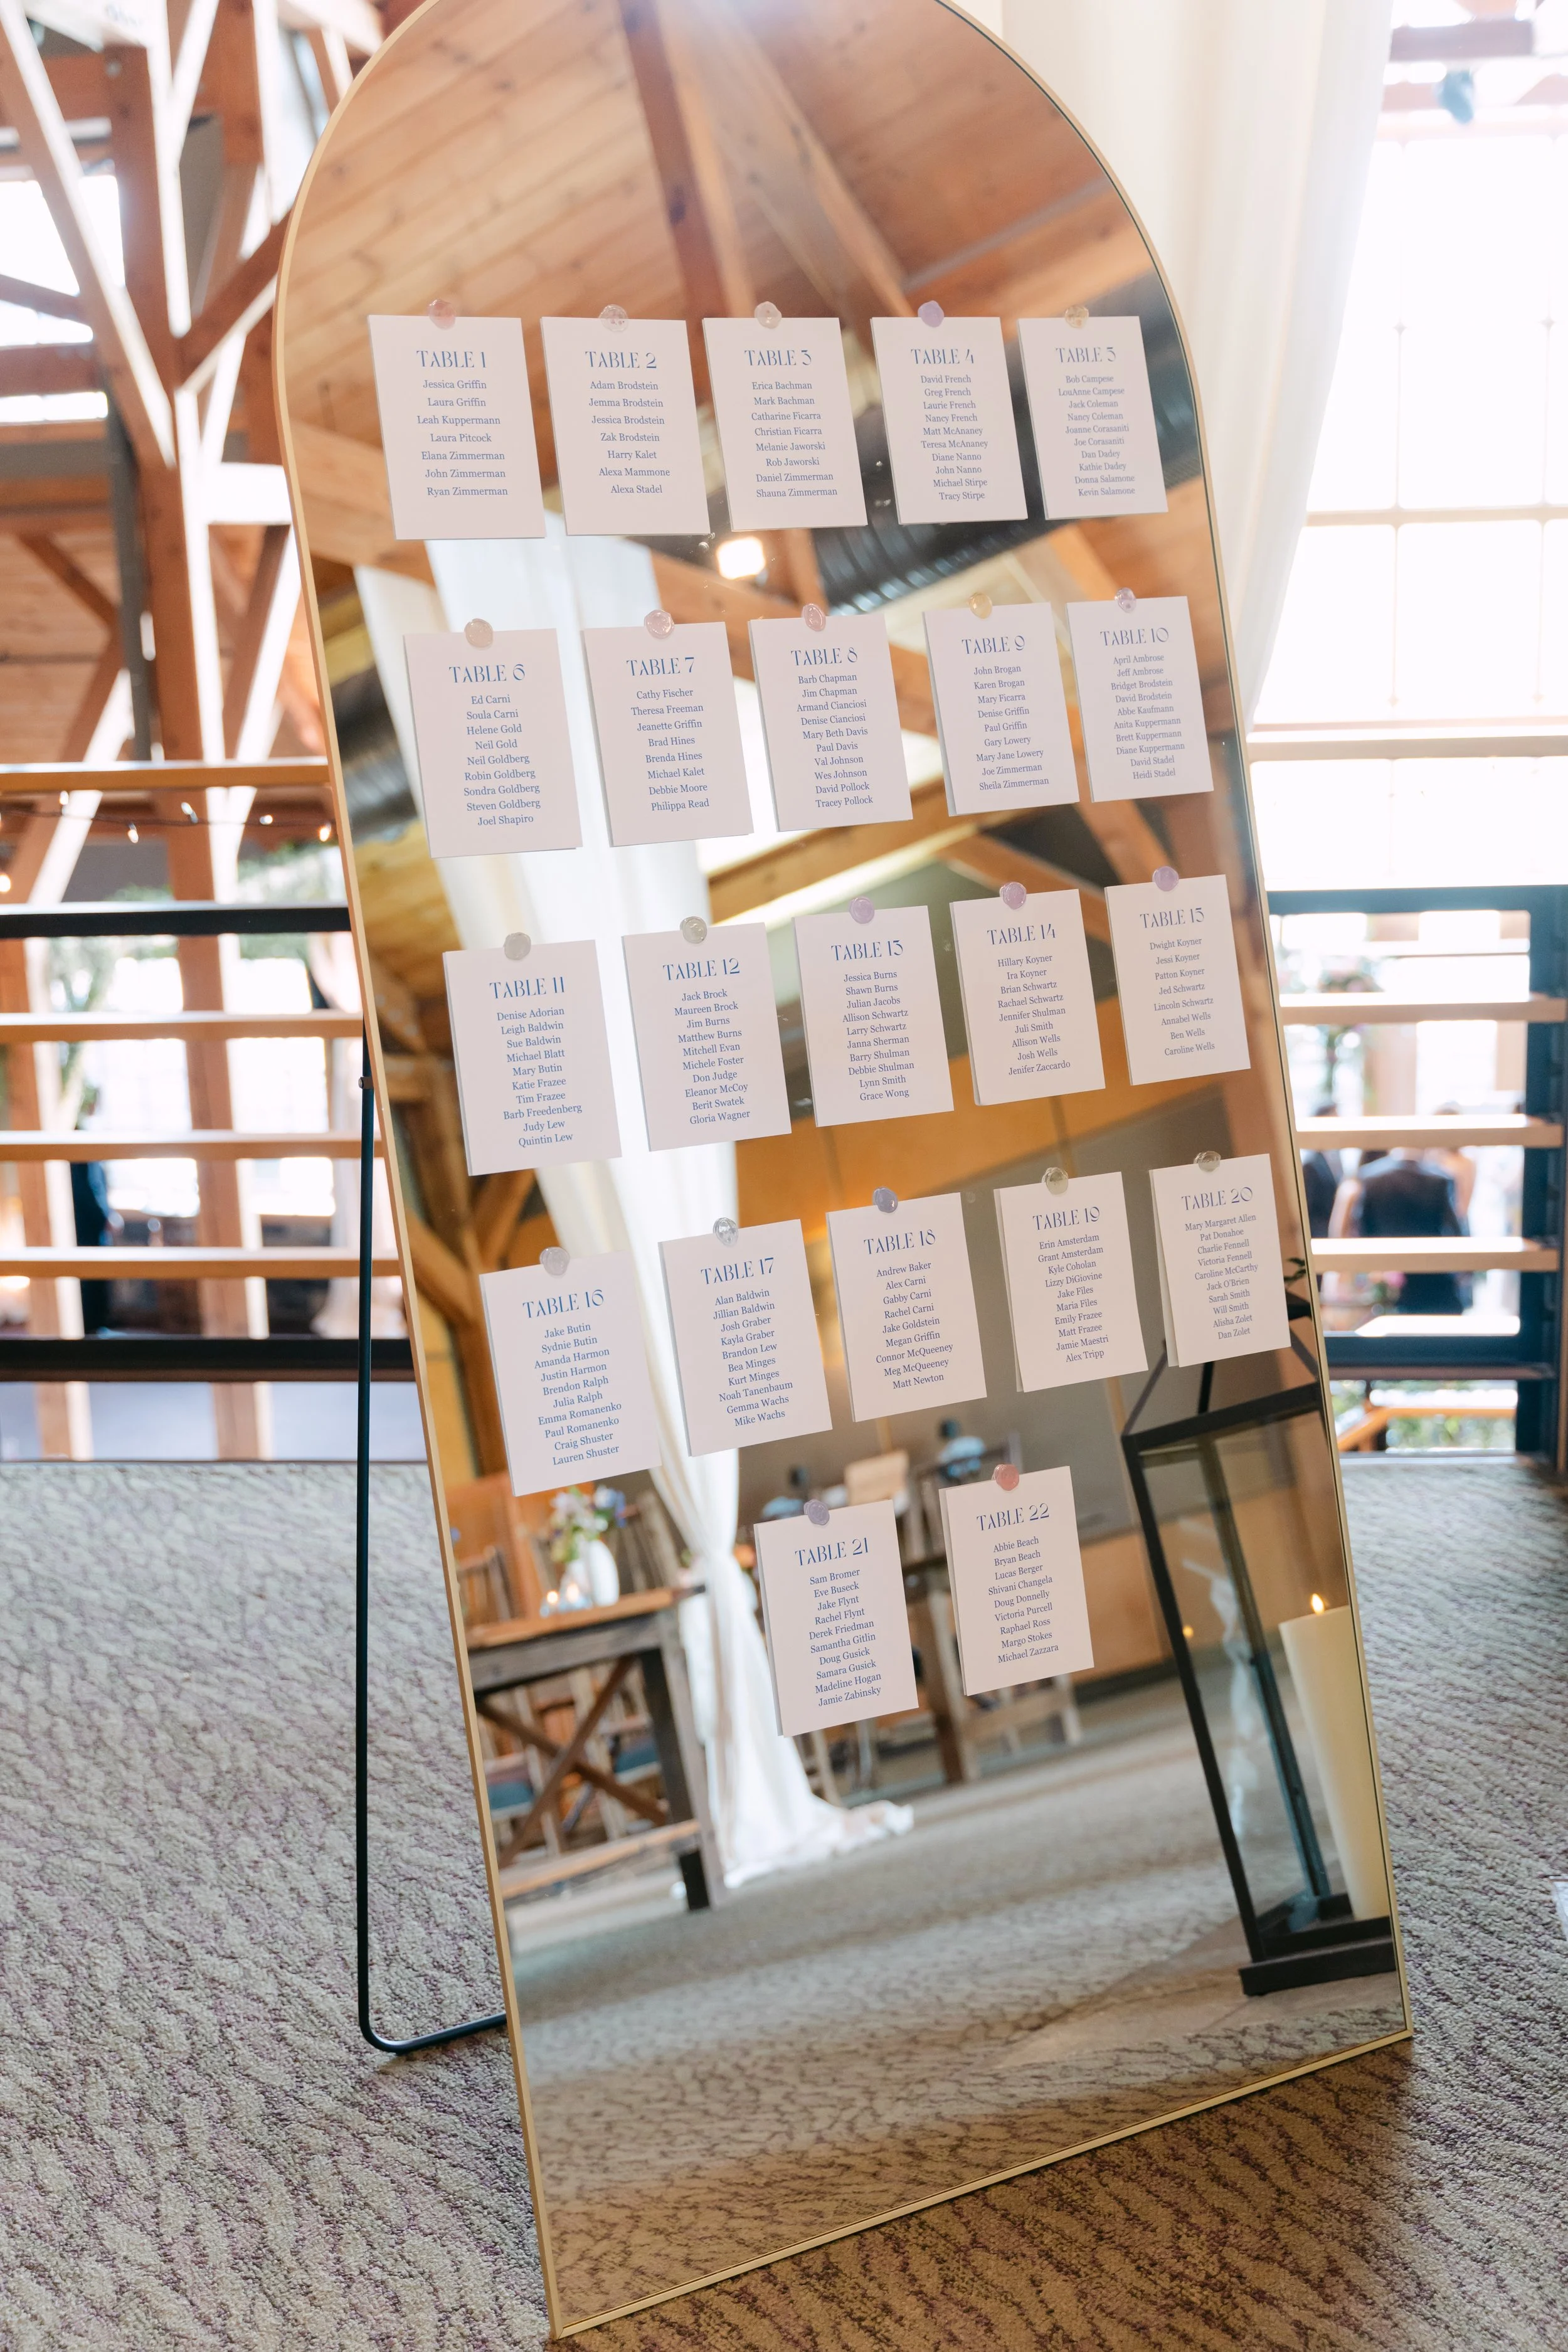 TABLE 1
Jessica Griffin
Laura Griffin
Leah Kuppermann
Laura Pitcock
Elana Zimmerman
John Zimmerman
Ryan Zimmerman
TABLE 2
Adam Brodstein
Jemma Brodstein
Jessica Brodstein
Zak Brodstein
Harry Kalet
Alexa Mammone
Alexa Stadel
TABLE 3
Erica Bachman
Mark Bachman
Catharine Ficarra
Christian Ficarra
Melanie Jaworski
Rob Jaworski
Daniel Zimmerman
Shauna Zimmerman
TABLE 4
David French
Greg French
Laurie French
Nancy French
Matt McAnaney
Teresa McAnaney
Diane Nanno
John Nanno
Michael Stirpe
Tracy Stirpe
TABLE 5
Bob Campese
LouAnne Campese
Jack Coleman
Nancy Coleman
Joanne Corasaniti
Joe Corasaniti
Dan Dadey
Kathie Dadey
Donna Salamone
Kevin Salamone
TABLE 6
Ed Carni
Soula Carni
Helene Gold
Neil Gold
Neil Goldberg
Robin Goldberg
Sondra Goldberg
Steven Goldberg
Joel Shapiro
TABLE 7
Cathy Fischer
Theresa Freeman
Jeanette Griffin
Brad Hines
Brenda Hines
Michael Kalet
Debbie Moore
Philippa Read
TABLE 8
Barb Chapman
Jim Chapman
Armand Cianciosi
Denise Cianciosi
Mary Beth Davis
Paul Davis
Val Johnson
Wes Johnson
David Pollock
Tracey Pollock
TABLE 9
John Brogan
Karen Brogan
Mary Ficarra
Denise Griffin
Paul Griffin
Gary Lowery
Mary Jane Lowery
Joe Zimmerman
Sheila Zimmerman
TABLE 10
April Ambrose
Jeff Ambrose
Bridget Brodstein
David Brodstein
Abbe Kaufmann
Anita Kuppermann
Brett Kuppermann
Diane Kuppermann
David Stadel
Heidi Stadel
TABLE 11
Denise Adorian
Leigh Baldwin
Sue Baldwin
Michael Blatt
Mary Butin
Katie Frazee
Tim Frazee
Barb Freedenberg
Judy Lew
Quintin Lew
TABLE 12
Jack Brock
Maureen Brock
Jim Burns
Matthew Burns
Mitchell Evan
Michele Foster
Don Judge
Eleanor McCoy
Berit Swatek
Gloria Wagner
TABLE 13
Jessica Burns
Shawn Burns
Julian Jacobs
Allison Schwartz
Larry Schwartz
Janna Sherman
Barry Shulman
Debbie Shulman
Lynn Smith
Grace Wong
TABLE 14
Hillary Koyner
Ira Koyner
Brian Schwartz
Rachael Schwartz
Jennifer Shulman
Juli Smith
Allison Wells
Josh Wells
Jenifer Zaccardo
TABLE 15
Dwight Koyner
Jessi Koyner
Patton Koyner
Jed Schwartz
Lincoln Schwartz
Annabel Wells
Ben Wells
Caroline Wells
TABLE 16
Jake Butin
Sydnie Butin
Amanda Harmon
Justin Harmon
Brendon Ralph
Julia Ralph
Emma Romanenko
Paul Romanenko
Craig Shuster
Lauren Shuster
TABLE 17
Alan Baldwin
Jillian Baldwin
Josh Graber
Kayla Graber
Brandon Lew
Bea Minges
Kurt Minges
Noah Tanenbaum
Gemma Wachs
Mike Wachs
TABLE 18
Andrew Baker
Alex Carni
Gabby Carni
Rachel Carni
Jake Goldstein
Megan Griffin
Connor McQueeney
Meg McQueeney
Matt Newton
TABLE 19
Erin Amsterdam
Grant Amsterdam
Kyle Coholan
Lizzy DiGiovine
Jake Files
Maria Files
Emily Frazee
Matt Frazee
Jamie Maestri
Alex Tripp
TABLE 20
Mary Margaret Allen
Pat Donahoe
Charlie Fennell
Victoria Fennell
Caroline McCarthy
Jack O'Brien
Sarah Smith
Will Smith
Alisha Zolet
Dan Zolet
TABLE 21
Sam Bromer
Eve Buseck
Jake Flynt
Rachel Flynt
Derek Friedman
Samantha Gitlin
Doug Gusick
Samara Gusick
Madeline Hogan
Jamie Zabinsky
TABLE 22
Abbie Beach
Bryan Beach
Lucas Berger
Shivani Changela
Doug Donnelly
Victoria Purcell
Raphael Ross
Margo Stokes
Michael Zazzara